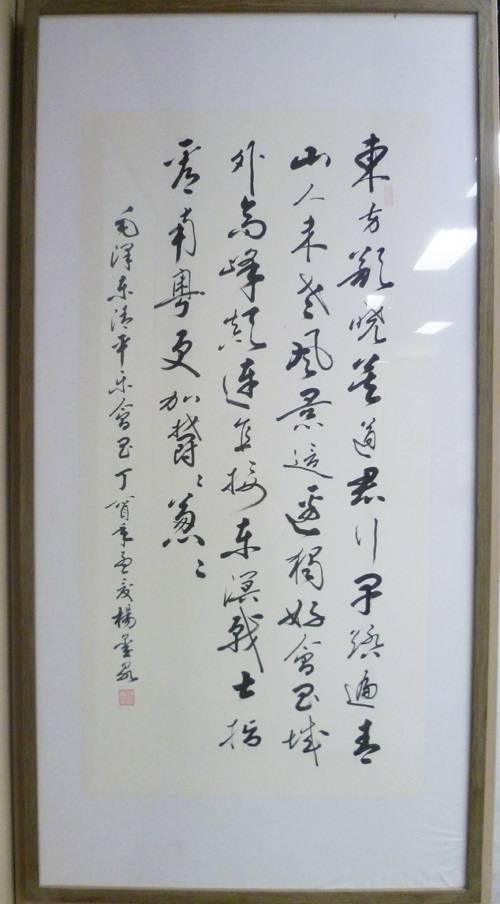 東方欲曉莫道君行早踏遍青
山人未老風景這邊獨好會昌城
外高峰顛連直接東溟戰士指
看南粵更加鬱〻葱〻
毛澤東清平樂會昌丁酉年孟夏楊